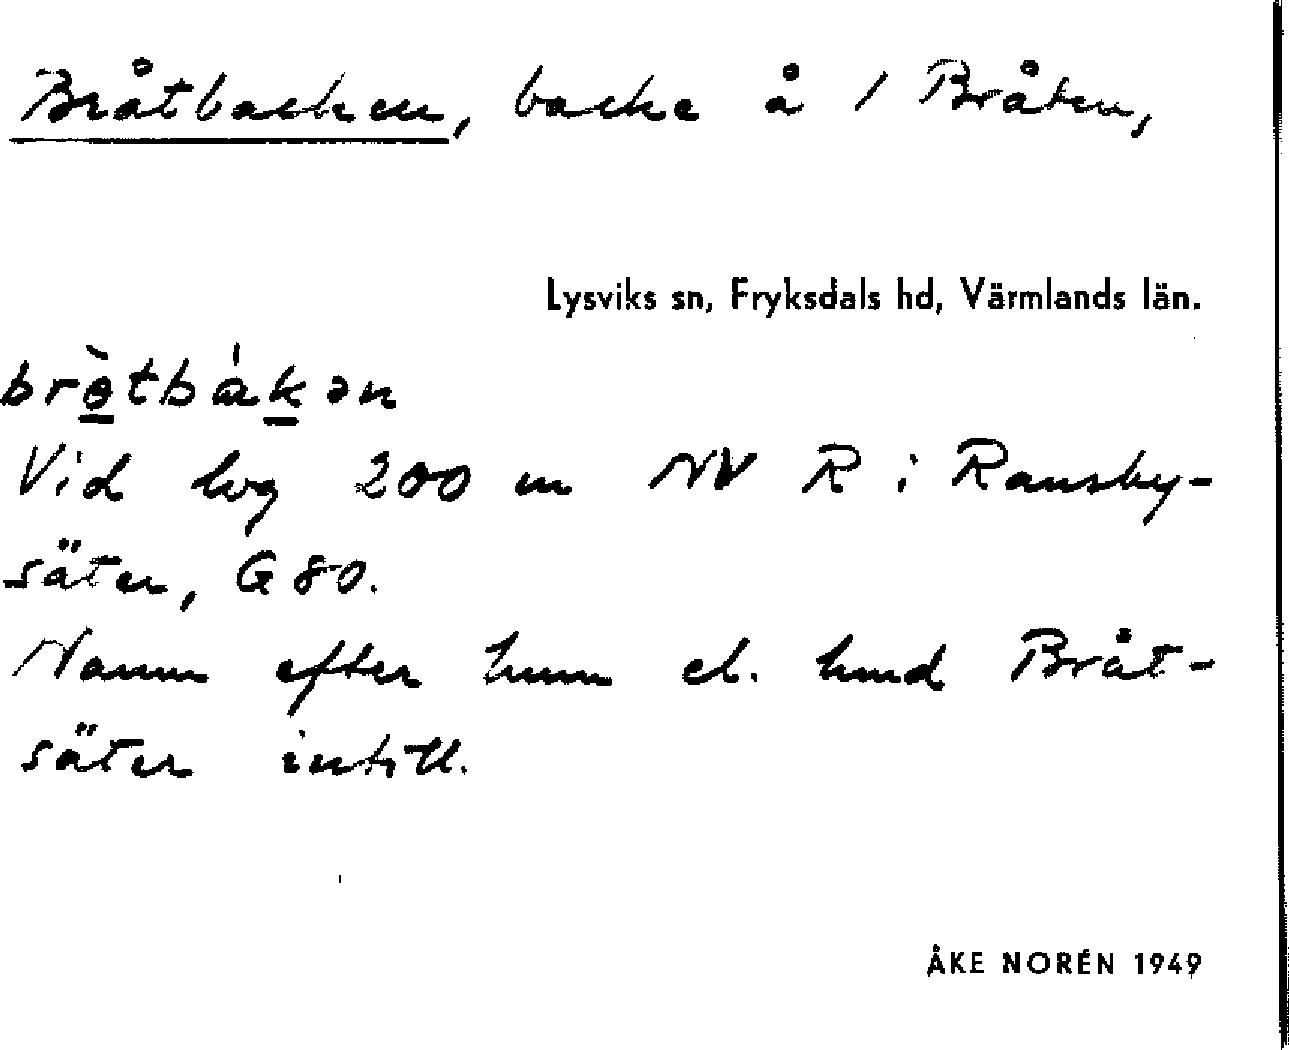 Bråtbacken, backe å 1 Bråten,
Lysviks sn, Fryksdals hd, Värmlands län.
brɵ̀tbákən
Vid väg 200 m NV R i Ransby-
säter, G 80.
Namn efter hmn el. hmd Bråt-
säter intill.
ÅKE NORÉN 1949